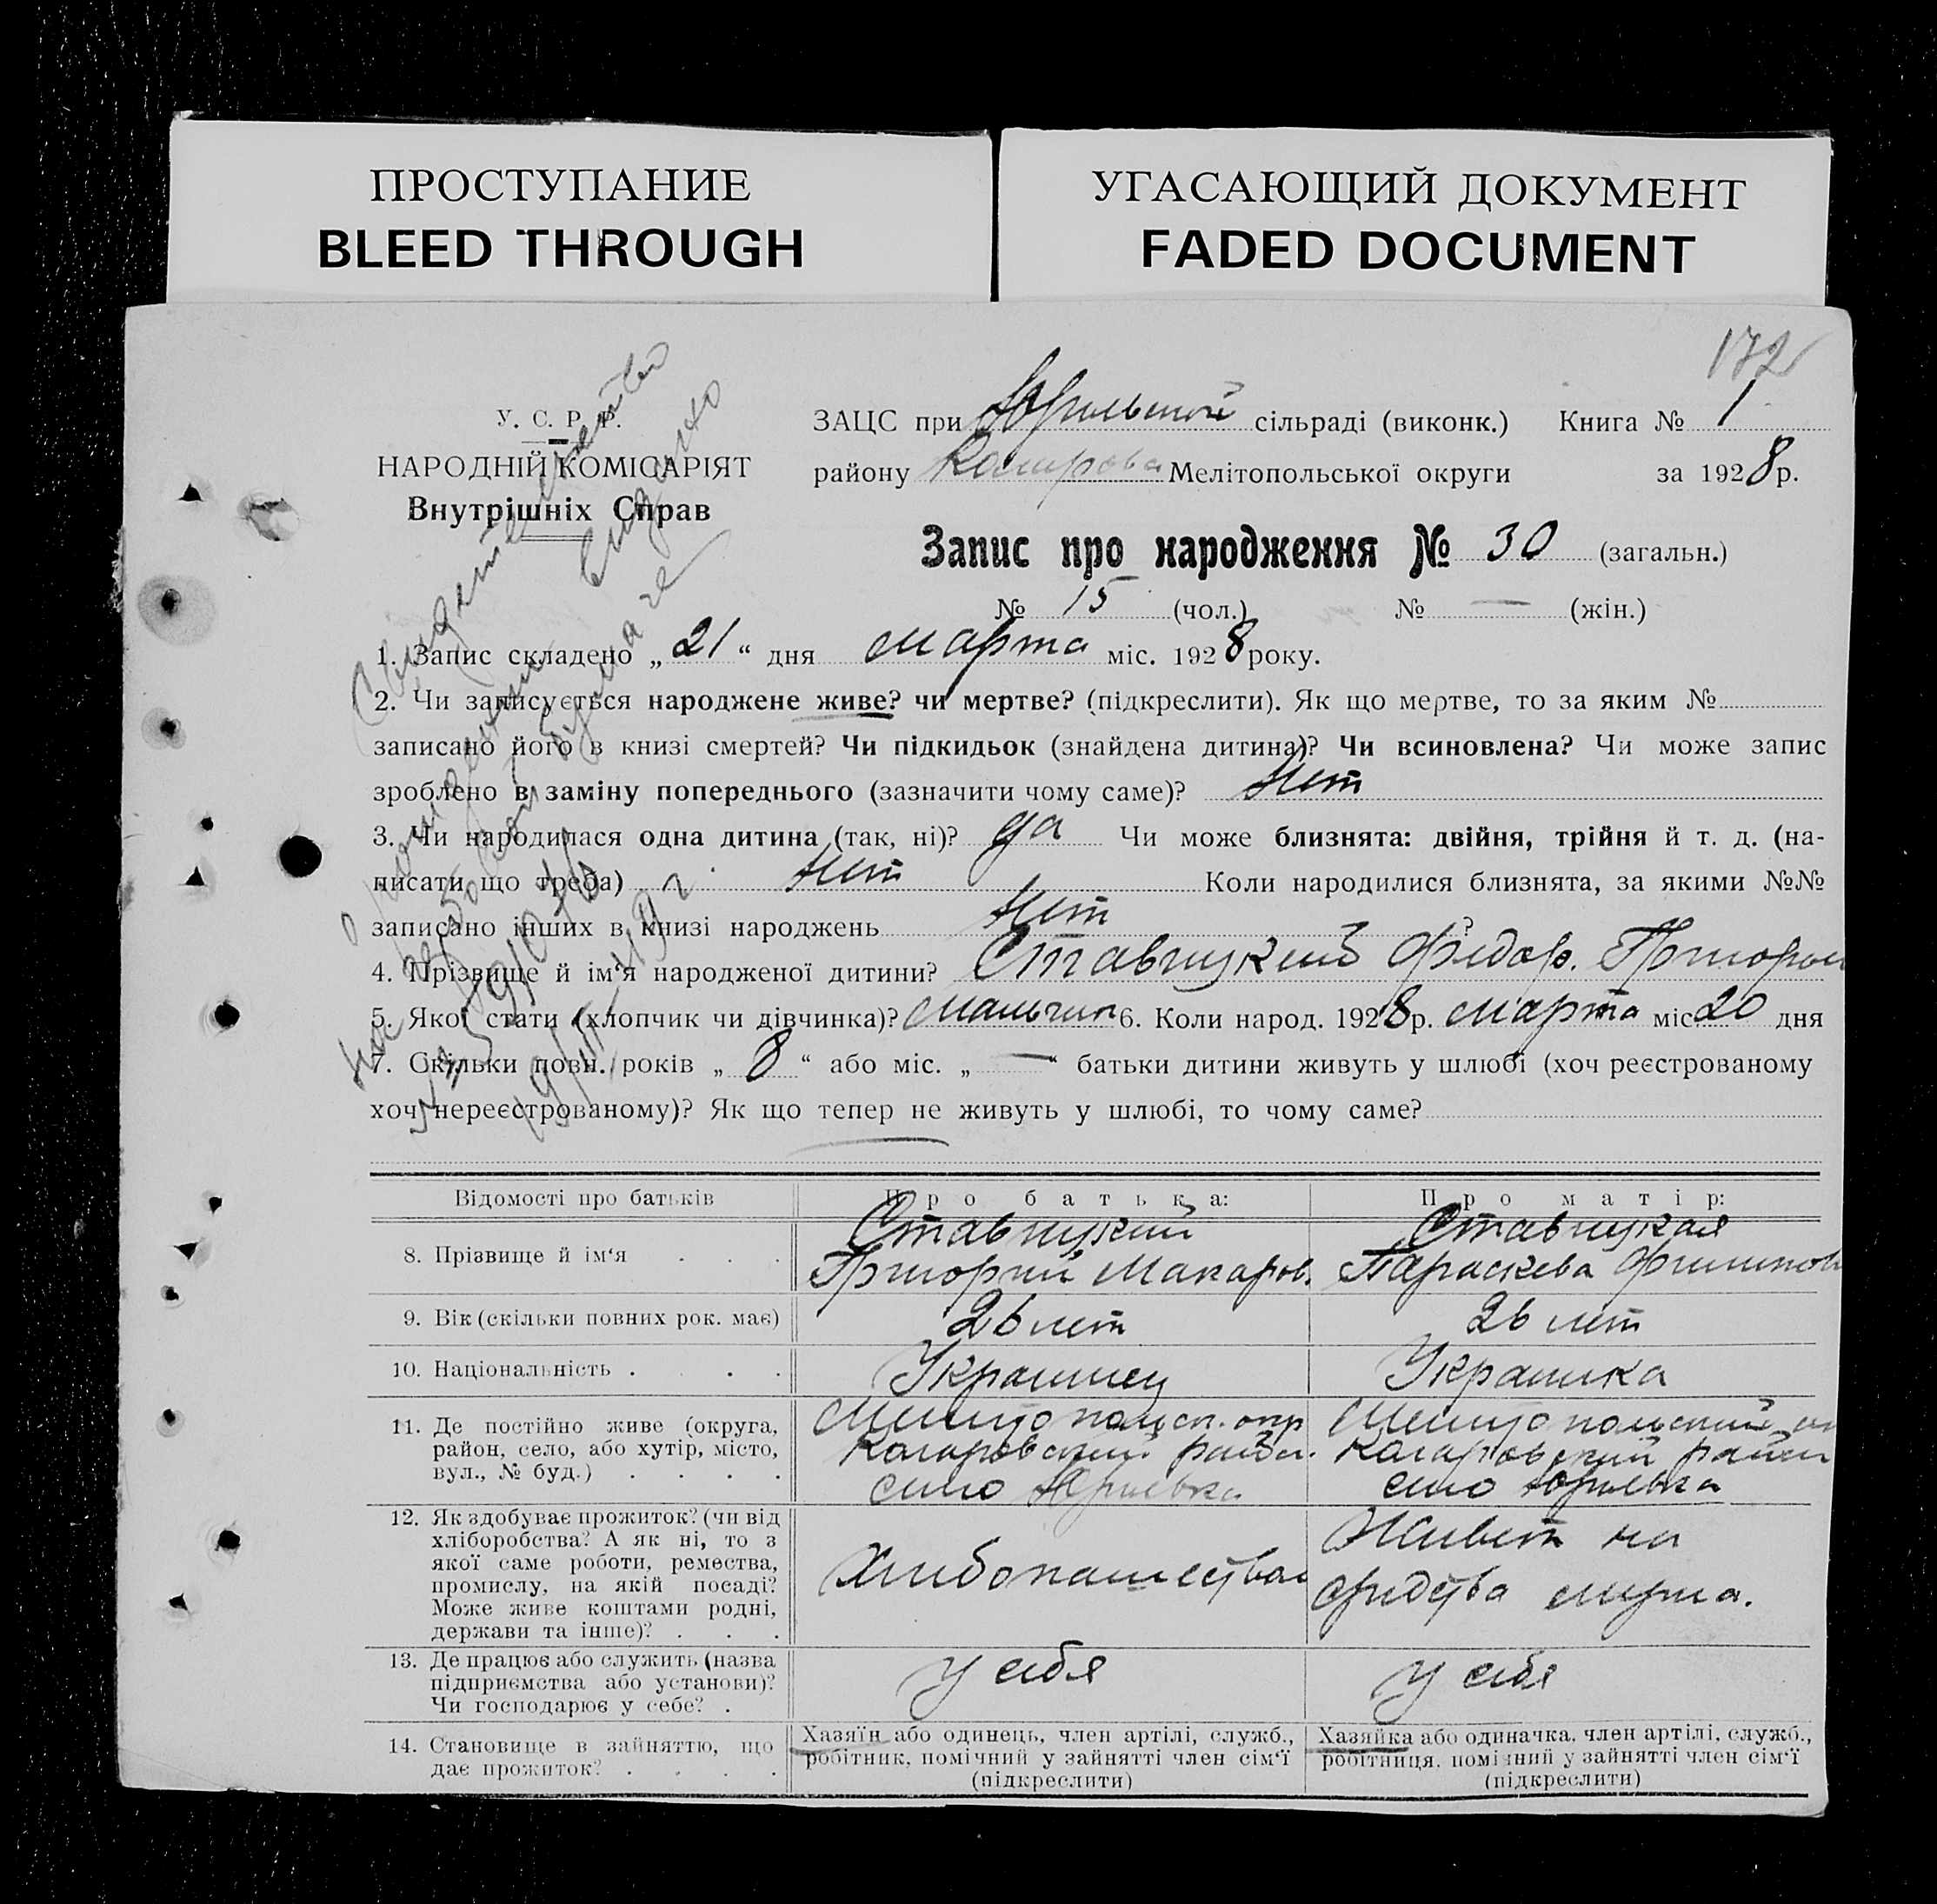 ПРОСТУПАНИЕ
BLEED THROUGH
УГАСАЮЩИЙ ДОКУМЕНТ
FADED DOCUMENT
172
У. С. Р. Р.
НАРОДНІЙ КОМІСАРІЯТ
Внутрішніх Справ
ЗАЦС при Юрьевской сільраді (виконк.) Книга № 1
району Мелітопольської округи за 1928 р.
Запис про народження № 30 (загальн.)
№ 15 (чол.) № — (жін.)
1. Запис складено „21“ дня марта міс. 1928 року.
2. Чи записується народжене живе? чи мертве? (підкреслити). Як що мертве, то за яким №
записано його в книзі смертей? Чи підкидьок (знайдена дитина)? Чи всиновлена? Чи може запис
зроблено в заміну попереднього (зазначити чому саме)? Нет
3. Чи народилася одна дитина (так, ні)? да Чи може близнята: двійня, трійня й т. д. (на-
писати що треба) Нет Коли народилися близнята, за якими №№
записано інших в книзі народжень Нет ?
4. Прізвище й ім‘я народженої дитини? Ставицкий Федор. Григорьев
5. Якої стати (хлопчик чи дівчинка)? Мальчик 6. Коли народ. 1928 р. марта міс. 20 дня
7. Скільки повн. років „8“ або міс. „—“ батьки дитини живуть у шлюбі (хоч реєстрованому
хоч нереєстрованому)? Як що тепер не живуть у шлюбі, то чому саме?
Свидетельство
о рождении выдано
на гербовой бумаге
Відомості про батьків Про батька: Про матір:
8. Прізвище й ім‘я Ставицкий Ставицкая
Григорий Макаров. Параскева Филипов
9. Вік (скільки повних рок. має) 26 лет 26 лет
10. Національність Украинец Украинка
11. Де постійно живе (округа, Мелитопольск. окр Мелитопольский ок
район, село, або хутір, місто, район.
вул., № буд.) село Юрьевка село Юрьевка
12. Як здобуває прожиток? (чи від
хліборобства? А як ні, то з Живет на
якої саме роботи, ремества,
промислу, на якій посаді? Хлебопашеством
Може живе коштами родні, средства мужа.
держави та інше)?
13. Де працює або служить (назва у себя у себя
підприємства або установи)?
Чи господарює у себе?
14. Становище в зайняттю, що
дає прожиток?
Хазяїн або одинець, член артілі, служб.,
робітник, помічний у зайнятті член сім‘ї
(підкреслити)
Хазяйка або одиначка, член артілі, служб.,
робітниця, помічний у зайнятті член сім‘ї
(підкреслити)